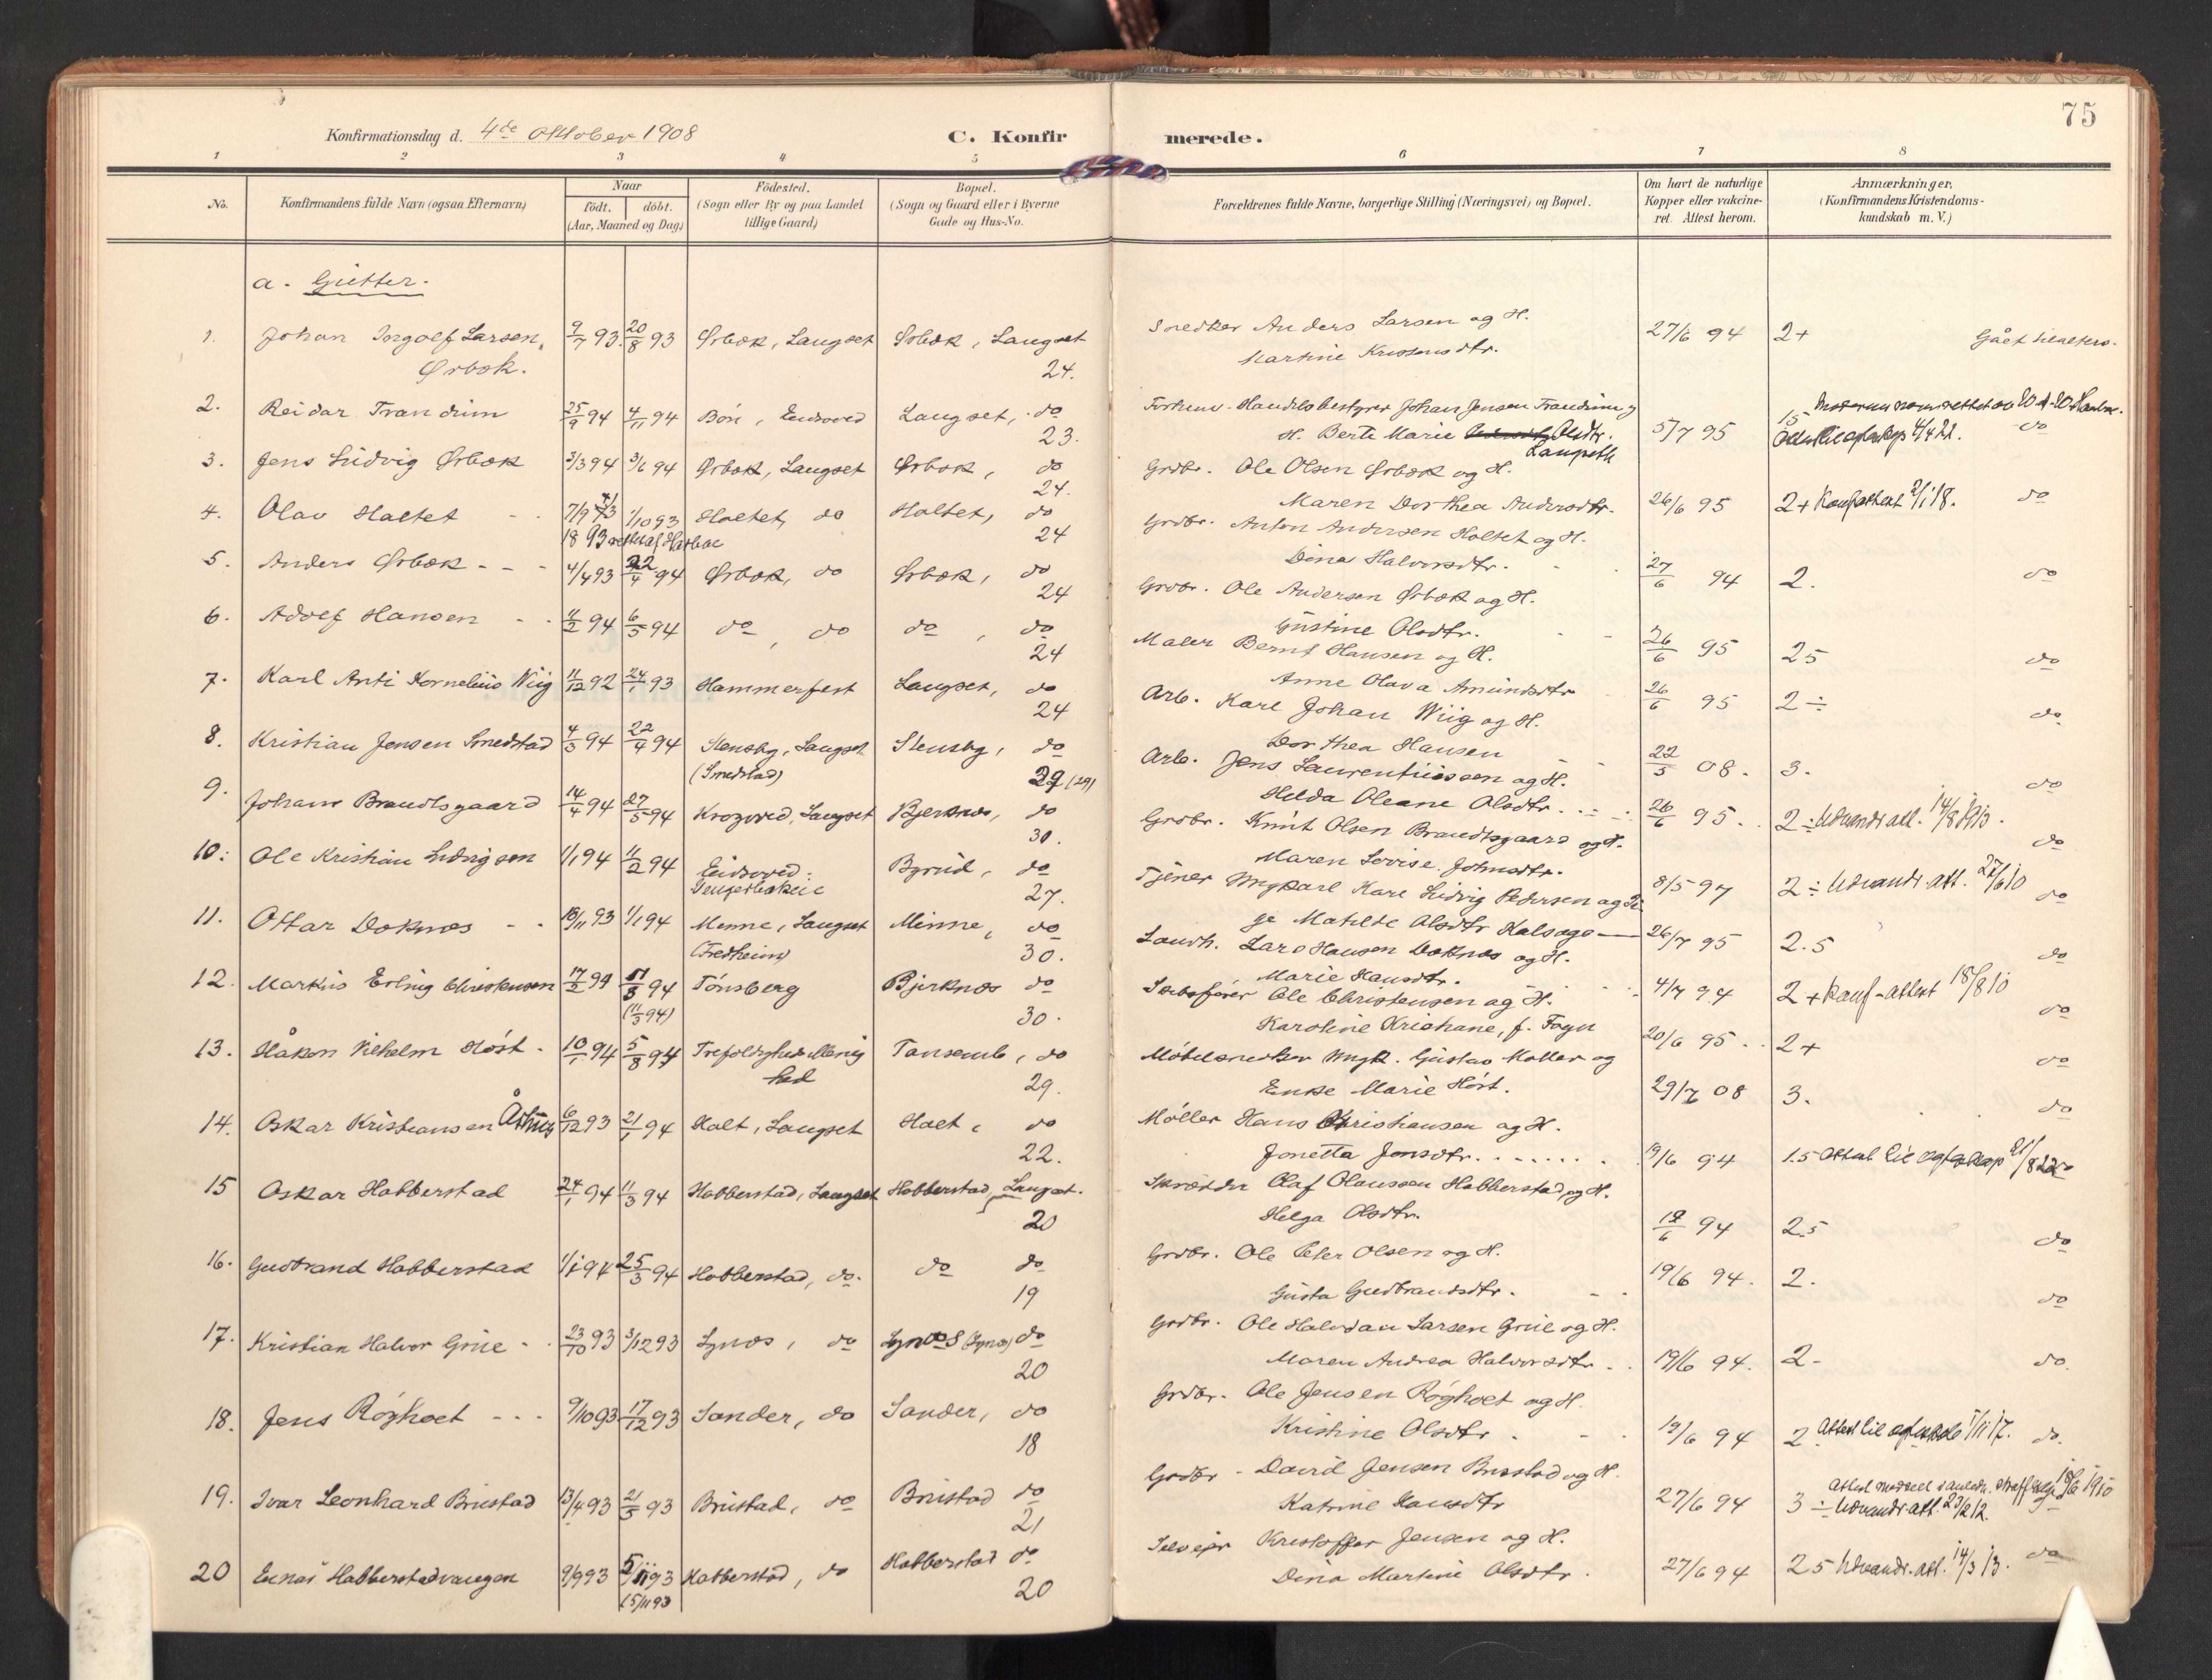 75
Konfirmationsdag d. 4de Oktober 1908 C. Konfirmerede.
1 2 3 4 5 6 7 8
No. Konfirmandens fulde Navn (ogsaa Efternavn) Naar födt. döbt. (Aar, Maaned og Dag) Födested. (Sogn eller By og paa Landet tillige Gaard) Bopæl. (Sogn og Gaard eller i Byerne Gade og Hus-No. Forældrenes fulde Navne, borgerlige Stilling (Næringsvei) og Bopæl. Om havt de naturlige Kopper eller vakcineret. Attest herom. Anmærkninger. (Konfirmandens Kristendomskundskab m. V.)
a. Gutter.
1. Johan Ingolf Larsen, 9/7 93. 20/8 93 Ørbæk, Langset Ørbæk, Langset Snedker Anders Larsen og H. 27/6 94 2+ Gået tilalters.
Ørbæk. 24. Martine Kristensdtr.
2. Reidar Trandum 25/9 94 4/11 94 Bön, Eidsvold Langset, do Forhenv. Handelsbestyrer Johan Jensen Trandum og 5/7 95 15 do
23. H. Berte Marie Olsdtr. Langseth
3. Jens Ludvig Ørbæk 3/3 94 3/6 94 Ørbæk, Langset Ørbæk, do Grdbr. Ole Olsen Ørbæk og H.
24. Maren Dorthea Andersdtr. 26/6 95 2+ Konfattest 2/1 18. do
4. Olav Holtet 7/9 93 1/10 93 Holtet, do Holtet, do Grdbr. Anton Andersen Holtet og H.
1893 24 Dina Halvorsdtr. 27/6 94 2. do
5. Anders Ørbæk 4/4 93 22/4 94 Ørbæk, do Ørbæk, do Grdbr. Ole Andersen Ørbæk og H.
24 Gustine Olsdtr. 26/6 95 25 do
6. Adolf Hansen 11/2 94 6/5 94 do, do do, do Maler Bernt Hansen og H.
24 Anne Olava Amundsdtr 26/6 95 2÷ do
7. Karl Anti Kornelius Wiig 11/12 92 24/1 93 Hammerfest Langset, do Arb. Karl Johan Wiig og H.
24 Dorthea Hansen 22/5 08. 3. do
8. Kristian Jensen Smedstad 4/3 94 22/4 94 Stensby, Langset Stensby, do Arb. Jens Laurentiussen og H.
(Smedstad) 29 (29) Hilda Oleane Olsdtr. 26/6 95. 2÷ Udvandr. att. 14/8 1913. do
9. Johann Brandtsgaard 14/4 94 27/5 94 Krogvold, Langset Bjerknes, do Grdbr. Knut Olsen Brandtsgaard og H.
30. Maren Lovise Johnsdtr. 8/5 97 2÷ Udvandr. att. 27/6 10 do
10. Ole Kristian Ludvigsen 1/1 94 11/2 94 Eidsvold: Byrud, do Tjener Ungkarl Karl Ludvig Pedersen og Pi
27. ge Matilde Olsdtr Kalsage 26/7 95 2.5 do
11. Ottar Doknes 10/11 93 1/1 94 Minne, Langset Minne, do Landh. Lars Hansen Doknes og H.
(Fredheim) 30. Marie Hansdtr. 4/7 94 2+ konf-attest 18/8 10 do
12. Markus Erling Christensen 17/2 94 11/3 94 Tönsberg Bjerknes do Skibsförer Ole Christensen og H.
(11/3 94) 30. Karoline Kristiane, f. Foyn 20/6 95. 2+ do
13. Håkon Vilhelm Höst 10/1 94 5/8 94 Trefoldigheds Menighed Tønsemb, do Möbelsnedker Ungk. Gustav Møller og
29. Enke Marie Höst. 29/7 08 3. do
14. Oskar Kristiansen Åshus 6/12 93 21/1 94 Holt, Langset Holt, do Möller Hans Christiansen og H.
22. Jonetta Jonsdtr. 19/6 94 1.5
15 Oskar Habberstad 24/1 94 11/3 94 Habberstad, Langset Habberstad, Langset. Skrædder Olaf Olaussen Habberstad, og H.
20 Helga Olsdtr. 19/6 94 2.5 do
16. Gudbrand Habberstad 1/1 94 25/3 94 Habberstad, do. do do Grdbr. Ole Peter Olsen og H.
19 Gusta Gudbrandsdtr. 19/6 94. 2. do
17. Kristian Halvor Grue 23/10 93 3/12 93 Lynes, do Lynes S (Lynes) do Grdbr. Ole Halvdan Larsen Grue og H.
20 Maren Andrea Halvorsdtr 19/6 94. 2- do.
18. Jens Röghoet 9/10 93 17/12 93 Sander, do Sander, do Grdbr. Ole Jensen Röghoet og H.
18 Kristine Olsdtr 19/6 94 2 do.
19. Ivar Leonhard Brustad 13/4 93 21/5 93 Brustad, do Brustad do Grdbr - David Jensen Brustad og H.
21 Katrine Hansdtr 27/6 94 3÷ Udvandr. att. 23/2 12.
20 Einar Habberstadvangen 9/9 93 5/11 93 Habberstad, do Habberstad do Selveier Kristoffer Jensen og H.
(5/11 93 20 Dina Martine Olsdtr. 27/6 94 25 Udvandr. att. 14/3 13. do